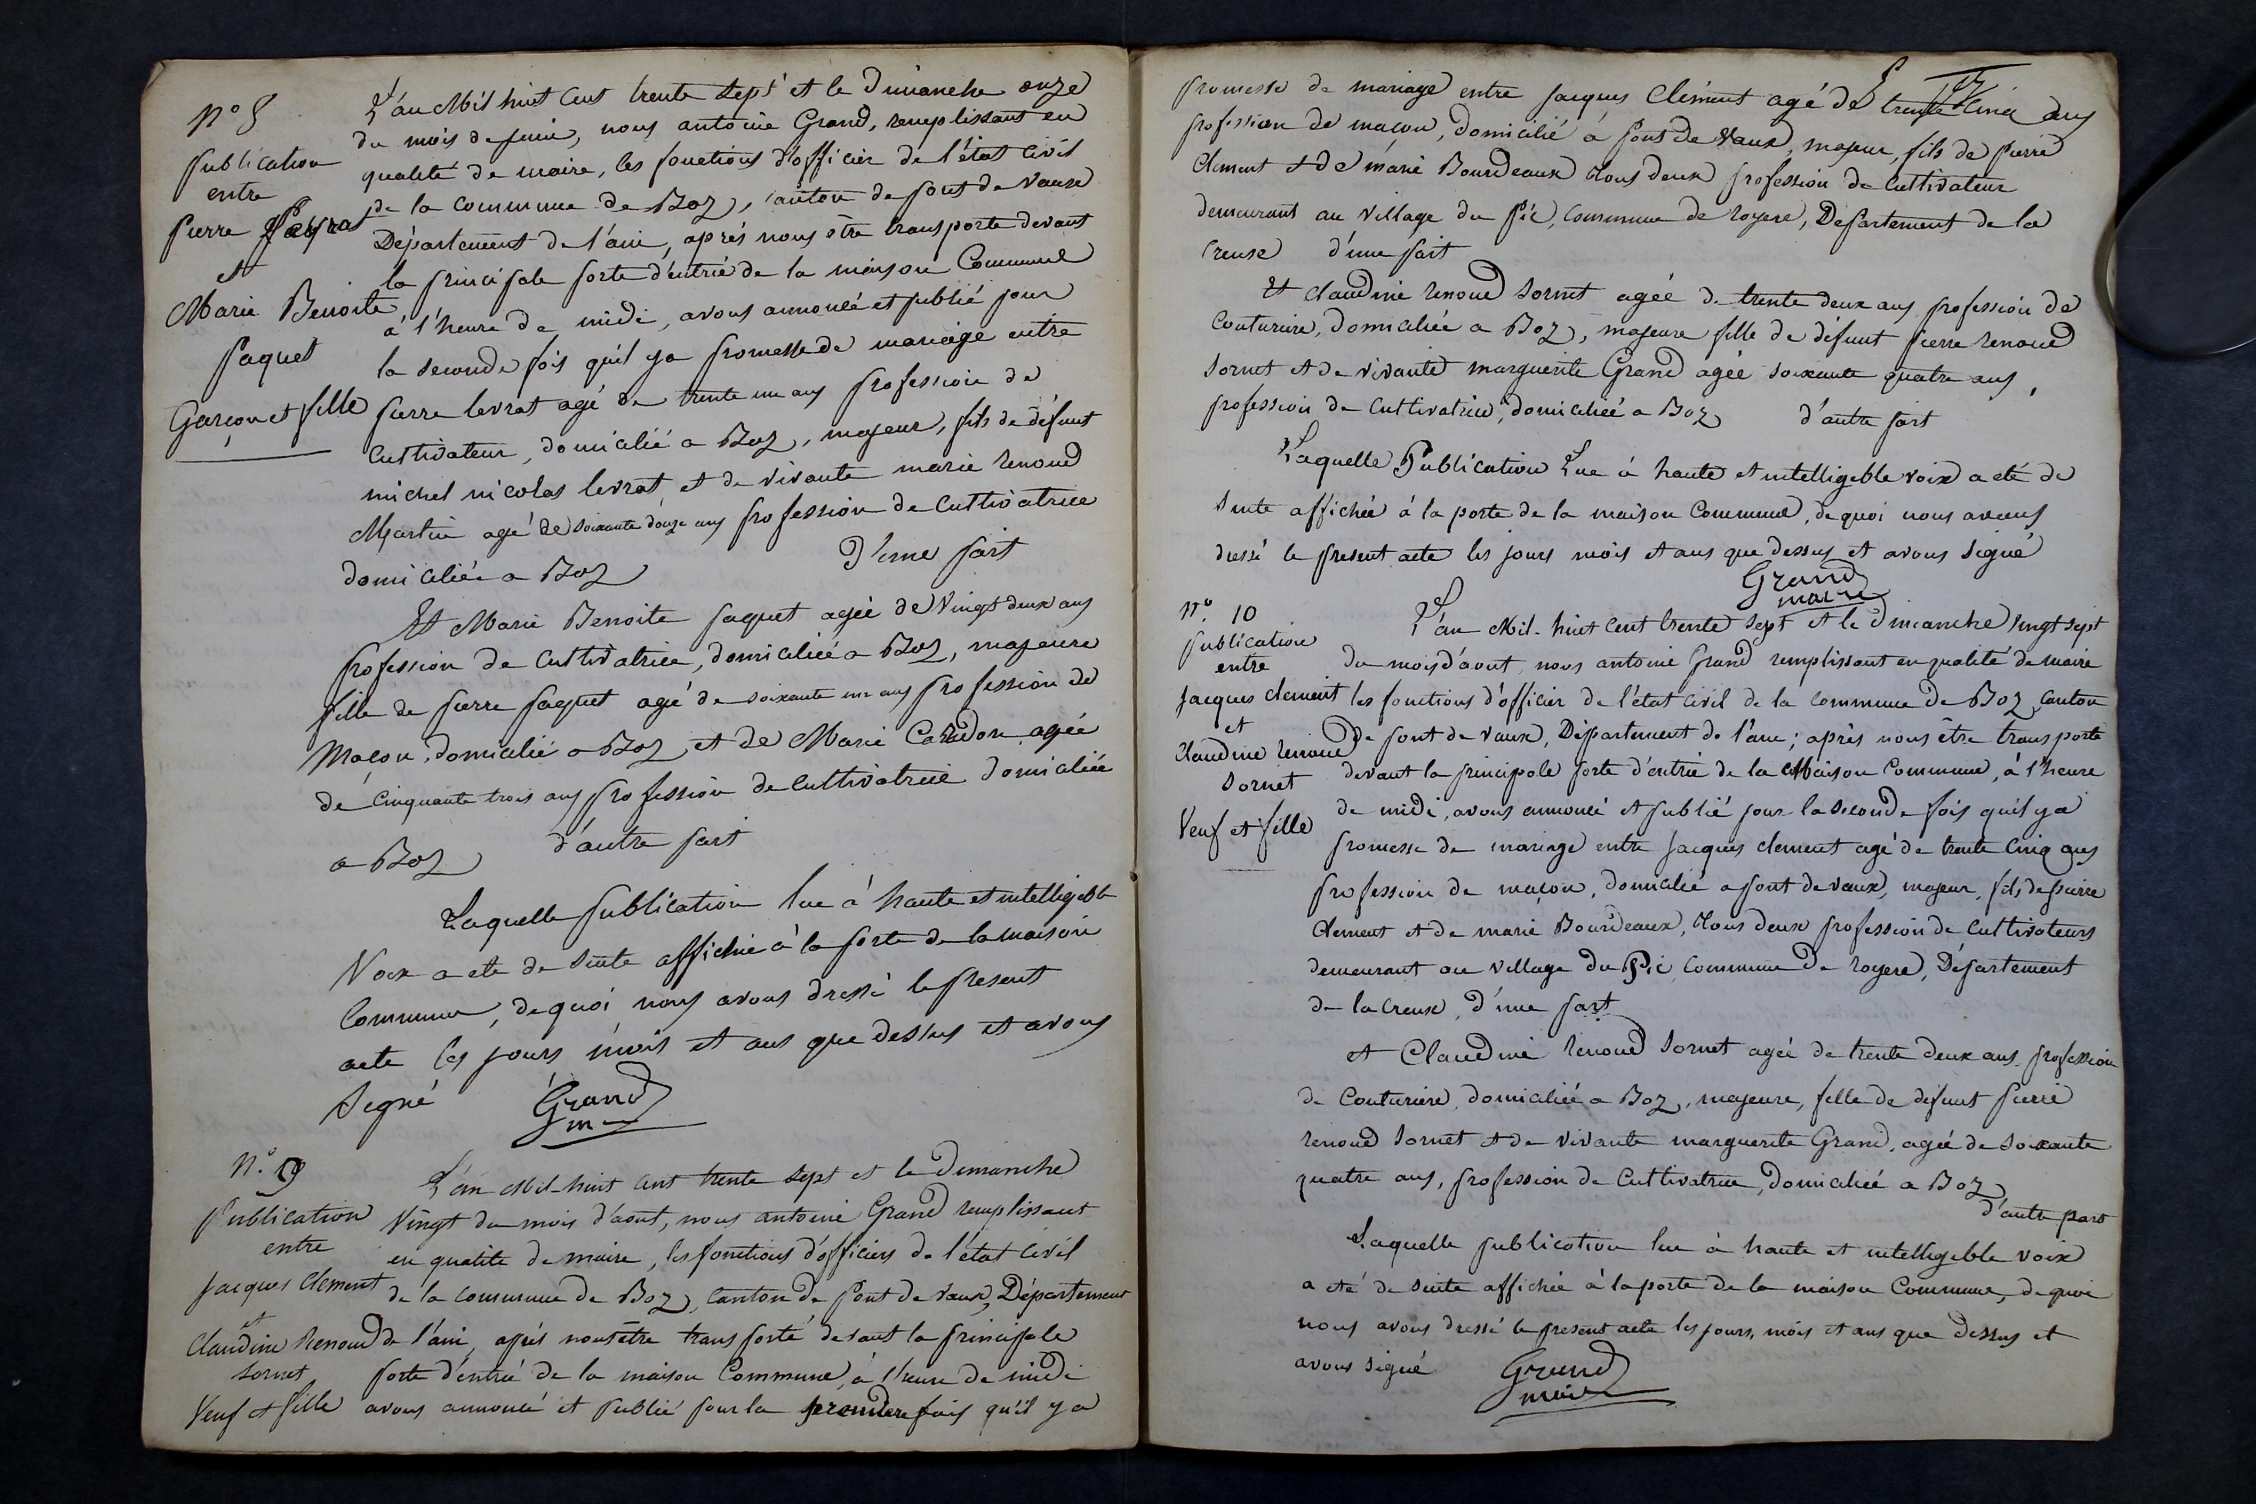 N° 8
publication
entre
pierre Levrat
et
Marie Benoite
paquet
Garçon et fille
L'an Mil huit cent trente sept et le dimanche onze
du mois de juin, nous antoine Grand, remplissant en
qualité de maire, les fonctions d'officier de l'état civil
de la commune de Boz, canton de pont de vaux
Département de l'ain, aprés nous être transporte devant
la principale porte d'entrée de la maison Commune
à l'heure de midi, avons annoncé et publié pour
la seconde fois qu'il ya promesse de mariage entre
pierre levrat agé de trente un ans profession de
Cultivateur, domicilié a Boz, majeur, fils de défunt
michel nicolas levrat et de vivante marie renoud
Martin agé de soixante douze ans profession de Cultivatrice
domiciliée a Boz d'une part
Et Marie Benoite paquet agée de vingt deux ans
profession de Cultivatrice, domiciliée a Boz, majeure
fille de pierre paquet agé de soixante un ans profession de
Maçon, domicilié a Boz et de Marie agée
de Cinquante trois ans profession de cultivatrice domiciliée
a Boz d'autre part
Laquelle publication lue à haute et intelligible
Voix a ete de suite affichée à la porte de la maison
Commune, de quoi nous avons dressé le présent
acte les jours mois et ans que dessus et avons
signé Grand
N.° 9
Publication
entre
jacques Clement
et
Claudine Renoud
sornet
Veuf et fille
L'an Mil-huit cent trente sept et le dimanche
vingt du mois d'aout, nous antoine Grand remplissant
en qualite de maire, les fonctions d'officiers de l'état Civil
de la commune de Boz, canton de Pont de vaux, Département
de l'ain, aprés nous être transporté devant la principale
porte d'entrée de la maison Commune, à l'heure de midi
avons annoncé et publié pour la premiere fois qu'il y a
promesse de mariage entre jacques Clément agé de trente cinq ans
profession de maçon, domicilié à pont de vaux, majeur, fils de pierre
Clement et de marie Bourdeaux tous deux profession de Cultivateur
demeurant au village du Pic, Commune de royere, Département de la
Creuse d'une part
Et Claudine renoud sornet agée de trente deux ans profession de
Couturiere, domiciliée a Boz, majeure fille de défunt pierre renoud
sornet et de vivante marguerite Grand agée soixante quatre ans,
profession de Cultivatrice, domiciliée a Boz d'autre part
Laquelle Publication Lue à haute et intelligible voix a eté de
suite affichée à la porte de la maison Commune, de quoi nous avons
dressé le present acte les jours mois et ans que dessus et avons signé
Grand
maire
N.° 10
publication
entre
Jacques Clement
et
Claudine renoud
Sornet
Veuf et fille
L'an Mil-huit cent trente sept et le dimanche vingt sept
du mois d'aout, nous antoine Grand remplissant en qualité de maire
les fonctions d'officier de l'état civil de la commune de Boz, canton
de pont de vaux, Département de l'ain; après nous être transporte
devant la principale porte d'entrée de la Maison Commune, à l'heure
de midi, avons annoncé et publié pour la seconde fois qu'il ya
promesse de mariage entre Jacques clement agé de trente Cinq ans
profession de maçon, domicilié a pont de vaux, majeur, fils de pierre
Clement et de marie Bourdeaux, tous deux profession de Cultivateurs
demeurant au village du Pic Commune de royere, Département
de la Creuse, d'une part
et Claudine renoud sornet agée de trente deux ans, profession
de Couturiere, domiciliée a Boz, majeure, fille de défunt pierre
renoud sornet et de vivante marguerite Grand, agée de soixante
quatre ans, profession de Cultivatrice, domiciliée a Boz
d'autre part
Laquelle publication lue à haute et intelligible voix
a eté de suite affichée à la porte de la maison Commune, de quoi
nous avons dressé le present acte les jours, mois et ans que dessus et
avons signé Grand
maire